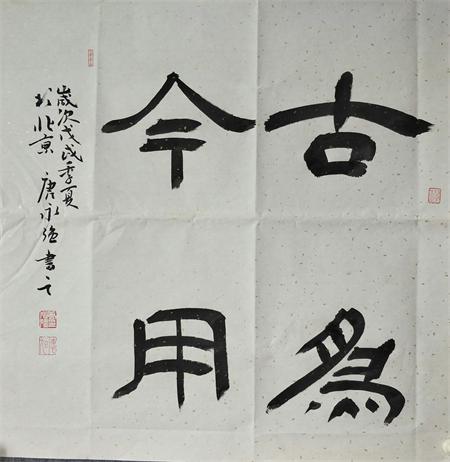 古為
今用
歲次戊戌季夏
於北京 唐永強書之